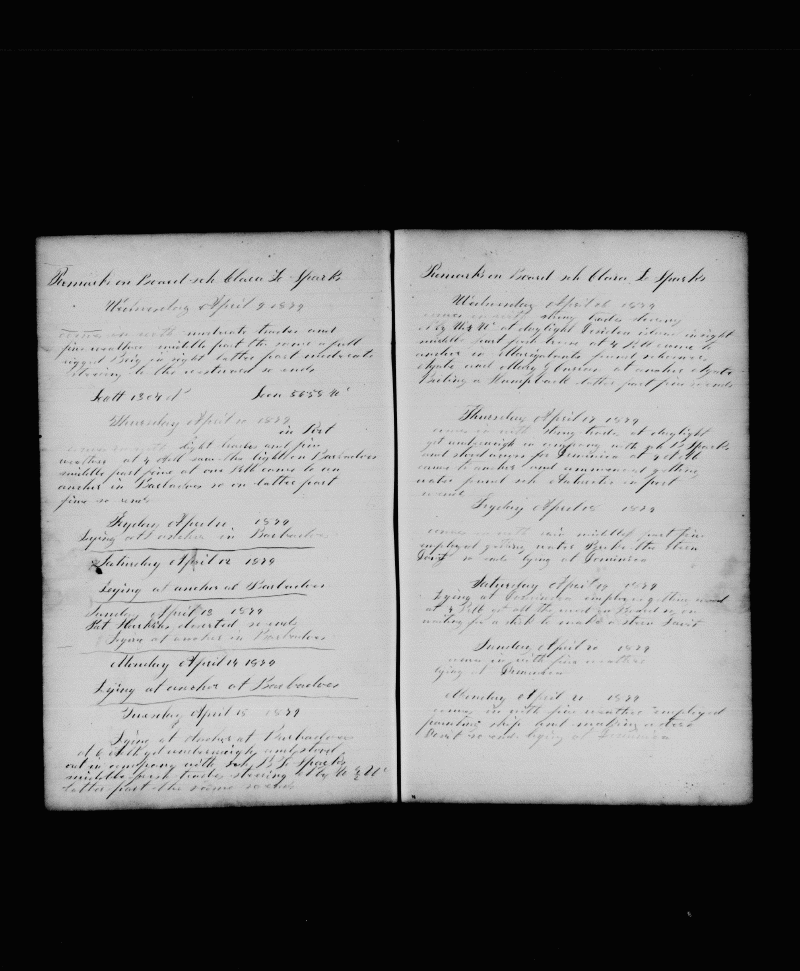 Remarks on Board sch Clara L Sparks
Wednesday April 9 1879
comes in with moderate trades and
fine weather middle part the same a full
rigged Brig in sight latter part moderate
steering to the westward so ends
Latt 13 04 N Lon 56 58 W
Thursday April 10 1879
in Port
comes in with light trades and fine
weather at 4 saw the light on Barbadoes
middle part fine at one Bell came to an
anchor in Barbadoes so on latter part
fine so ends
Fryday April 11 1879
Lying at anchor in Barbadoes
Saturday April 12 1879
Lying at anchor at Barbadoes
Sunday April 13 1879
Pat Harkins deserted so ends
Lying at anchor in Barbadoes
Monday April 14 1879
Lying at anchor at Barbadoes
Tuesday April 15 1879
Lying at anchor at Barbadoes
at 6 got underweigh and stood
out in company with sch B L Sparks
middle fresh trades steering N by W 1/2 W
latter part the same so ends
Remarks on Board sch Clara L Sparks
Wednesday April 16 1879
comes in with strong trades steering
N by W 1/2 W at daylight island in sight
middle part at 4 Bell came to
anchor in Marigalante found schooners
Agate and Mary G Curren at anchor Agate
Boiling a Humpback latter part fine so ends
Thursday April 17 1879
comes in with strong trades at daylight
got underweigh in company with sch B L Sparks
and stood away for Dominica at 4
came to anchor and commenced getting
water found sch Antarctic in port
so ends
Fryday April 18 1879
comes in with rain middle part fine
employed getting water Broke the stern
Davit so ends lying at Dominica
Saturday April 19 1879
Lying at Dominica employed getting wood
at 4 Bell got all the wood on Board so on
waiting for a stick to make a stern Davit
Sunday April 20 1879
comes in with fine weather
lying at Dominica
Monday April 21 1879
comes in with fine weather employed
painting ship and making a stern
Davit so ends lying at Dominica